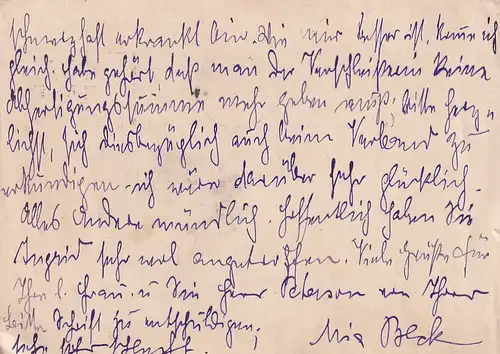 schmerzhaft erkrankt bin. Wie mir besser ist, komme ich
gleich. Habe gehört daß man der Verschleißerin keine
Abfertigungssumme mehr geben muß, bitte herz-
lichst, sich diesbezüglich auch beim Verband zu
erkundigen. ich wäre darüber sehr glücklich.
Alles Andere mündlich. Hoffentlich haben Sie
Ingrid sehr wol angetroffen. Viele Grüße für
Ihre l. Frau u Sie Herr Peterson von Ihrer
Bitte Schrift zu entschuldigen, Mia Beck
sehe sehr schlecht.